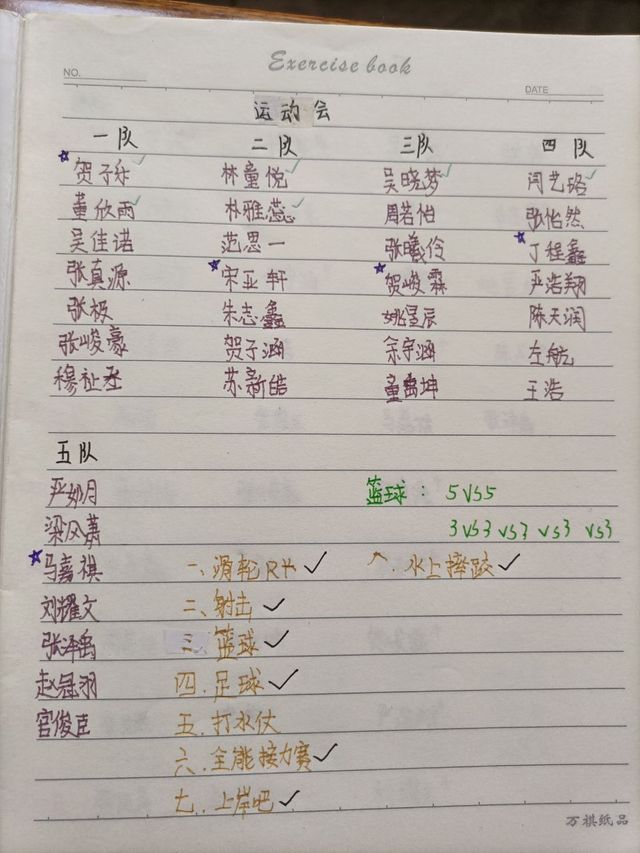 Exercise book
NO.
DATE
运动会
一队 二队 三队 四队
贺子乐 林童悦 吴晓梦 闫艺珞
董欣雨 朴雅蕊 周若怡 张怡然
吴佳诺 范思一 张曦伶 丁程鑫
张真源 宋亚轩 贺峻霖 严浩翔
张极 朱志鑫 姚昱辰 陈天润
张峻豪 贺子涵 余宇涵 左航
穆祉丞 苏新皓 童禹坤 王浩
五队
严如月 篮球: 5vs5
梁风萧 3vs3 vs3 vs3 vs3
马嘉祺 一、滑轮RH 八.水上摔跤
刘耀文 二、射击
张泽禹 三.篮球
赵冠羽 四.足球
官俊臣 五.打水仗
六.全能接力赛
七.上岸吧
万祺纸品